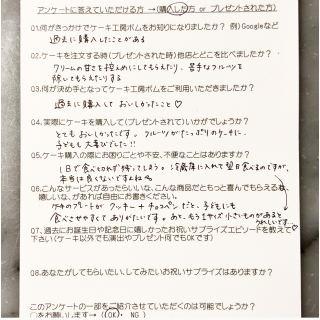 アンケートに答えていただける方 →(購入した方 or プレゼントされた方)
01.何がきっかけでケーキ工房ボムをお知りになりましたか？ 例)Googleなど
過去に購入したことがある
02.ケーキを注文する時(プレゼントされた時)他店とどこを比べましたか？
クリームの甘さを控えめにしてもらえたり、苦手なフルーツを
除いてもらえたりする
03.何が決め手となってケーキ工房ボムをご利用いただきましたか？
過去に購入して おいしかったこと♡
04.実際にケーキを購入して(プレゼントされて)いかがでしょうか？
とても おいしかったです。フルーツがたっぷりのケーキに、
子どもも大喜びでした!!
05.ケーキ購入の際にお困りごとや不安、不便なことはありますか？
1日で食べ切れず残ってしまう。冷蔵庫に入れて翌日食べるのですが、
本当は良くないですよね
06.こんなサービスがあったらいいな、こんな商品だともっと喜んでもらえる、
嬉しいな、があれば自由にお書きください。
ケーキのプレートが クッキー + チョコペン だと、子どもにも
食べさせやすくてありがたいです。あと、もう1サイズ小さいものがあると
うれしいです♡
07.過去にお誕生日や記念日に嬉しかったお祝いサプライズエピソードを教えて
下さい(ケーキ以外でも演出やプレゼント何でもOKです)
08.あなたがしてもらいたい、してみたいお祝いサプライズはありますか？
このアンケートの一部をご紹介させていただくのは可能でしょうか？
○をお願いします→ (OK・ NG )